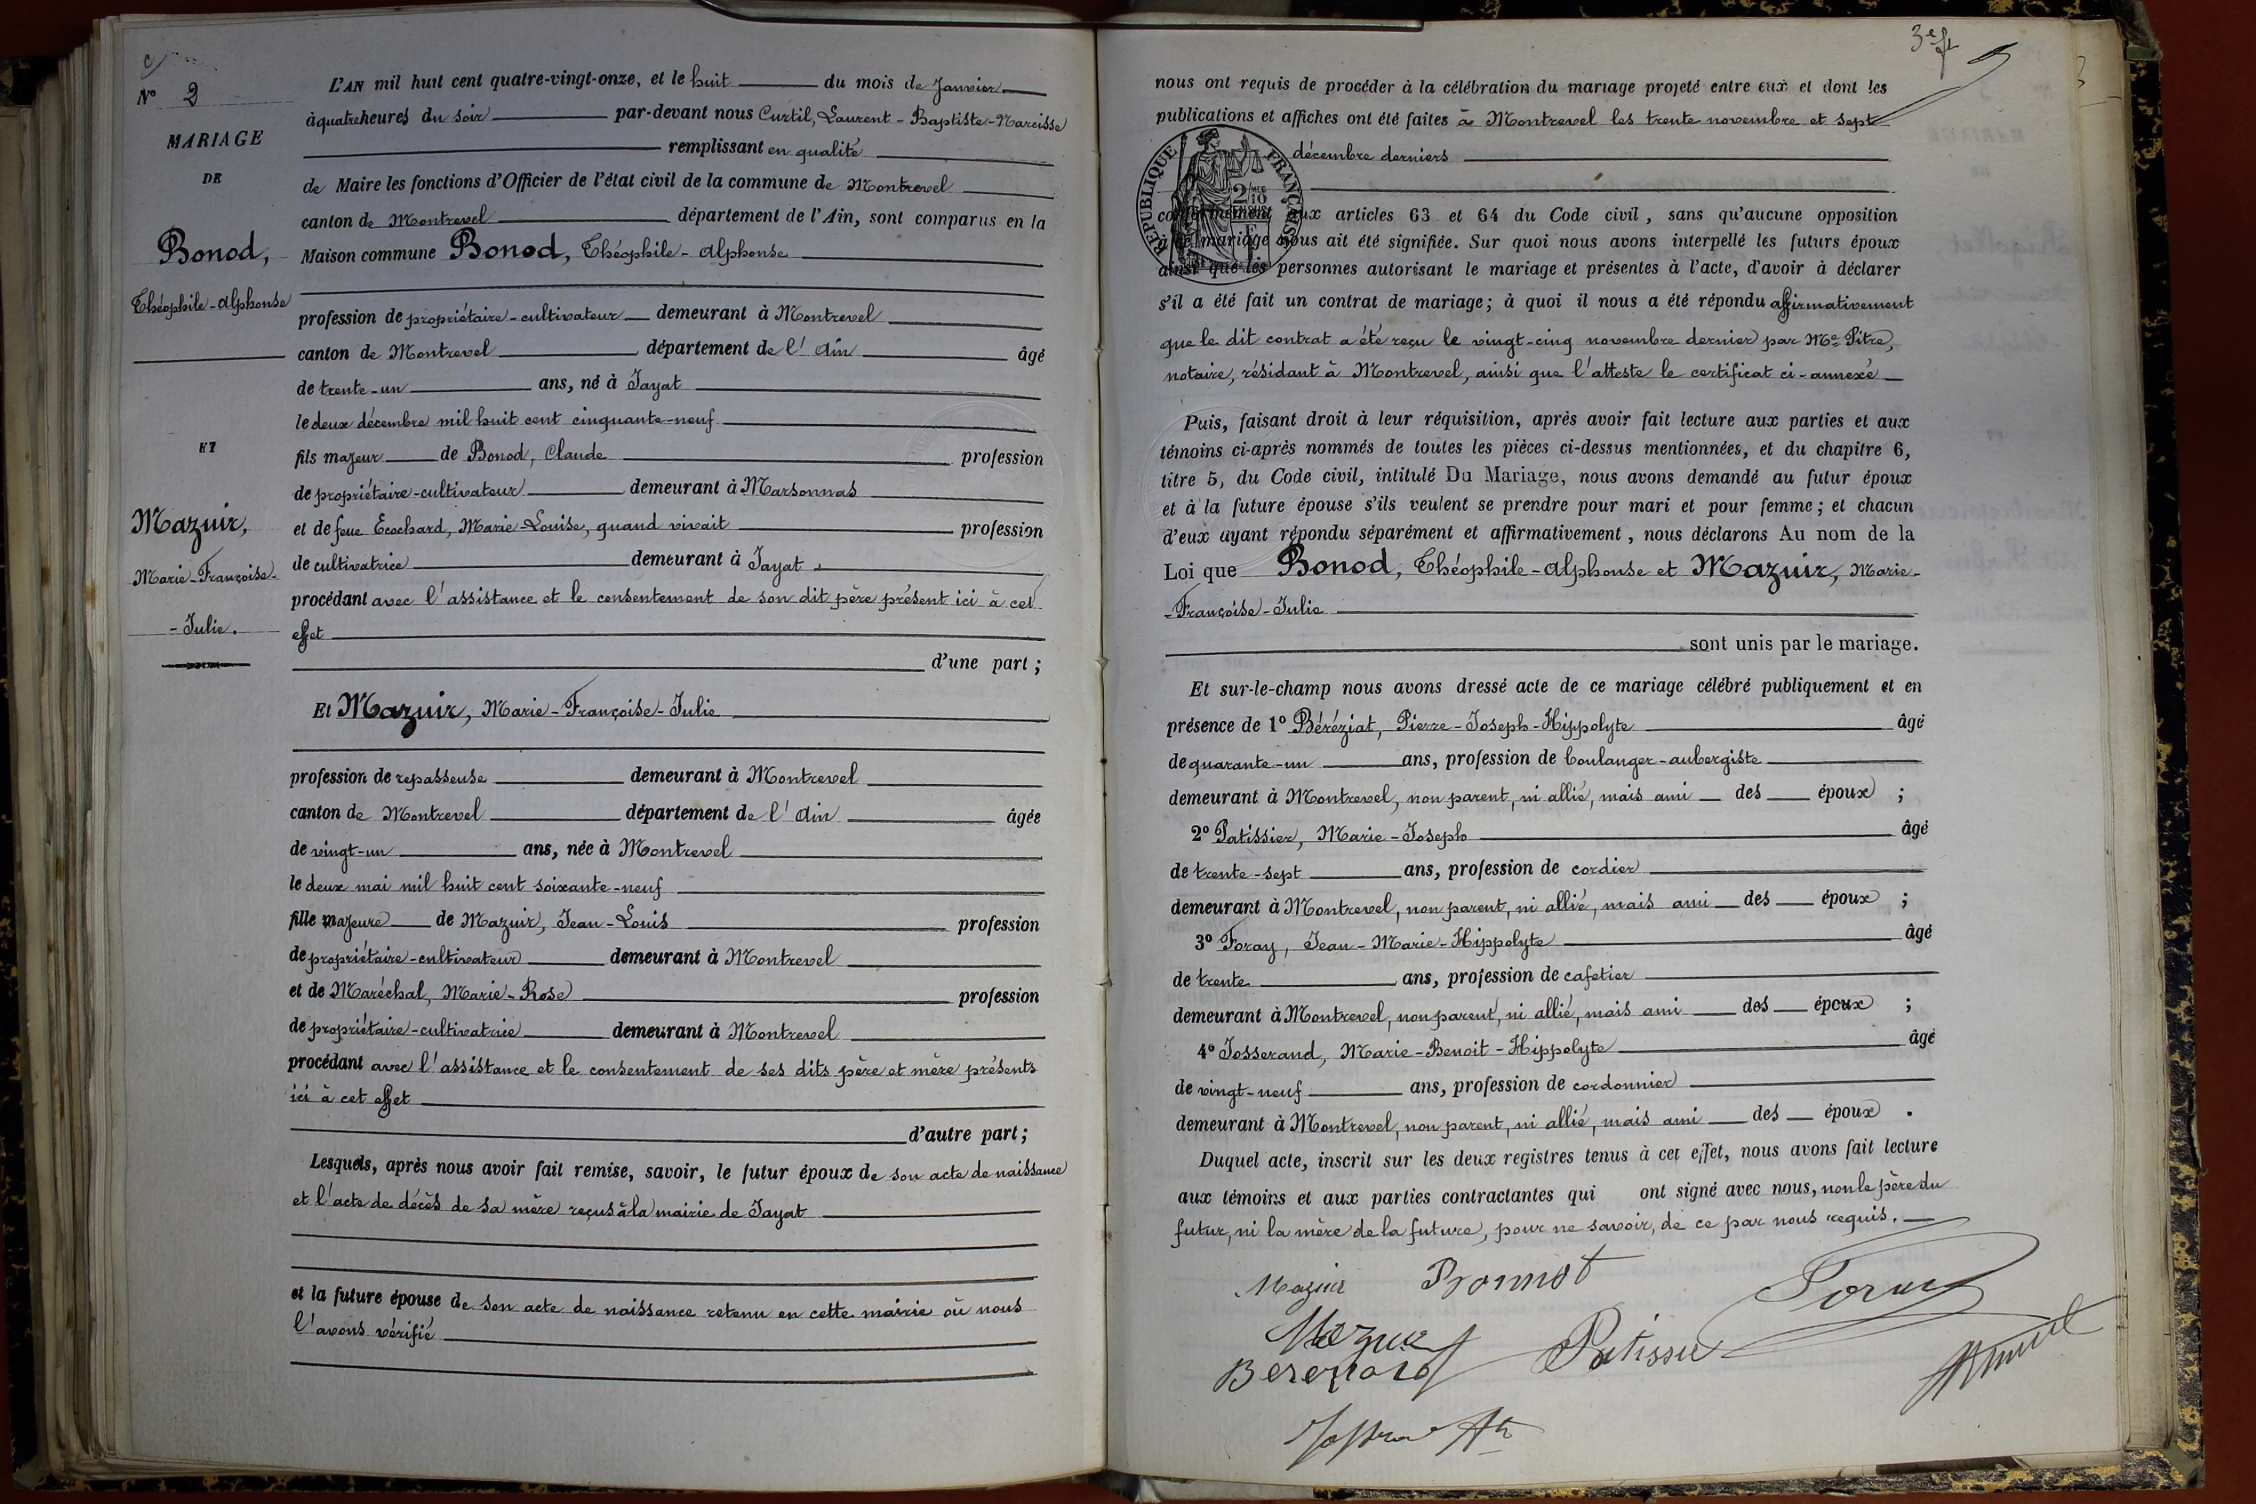 Nº 2
MARIAGE
DE
Bonod,
Théophile-Alphonse
ET
Mazuir,
Marie-Françoise-
-Julie.
L'AN mil huit cent quatre-vingt-onze, et le huit du mois de Janvier
à quatre heures du soir par-devant nous Curtil, Laurent-Baptiste-Narcisse
remplissant en qualité
de Maire les fonctions d'Officier de l'état civil de la commune de Montrevel
canton de Montrevel département de l'Ain, sont comparus en la
Maison commune Bonod, Théophile-Alphonse
profession de propriétaire-cultivateur demeurant à Montrevel
canton de Montrevel département de l'Ain âgé
de trente-un ans, né à Jayat
le deux décembre mil huit cent cinquante-neuf
fils majeur de Bonod, Claude profession
de propriétaire-cultivateur demeurant à Marsonnas
et de feue Ecochard, Marie-Louise, quand vivait profession
de cultivatrice demeurant à Jayat
procédant avec l'assistance et le consentement de son dit père présent ici à cet
effet
d'une part;
Et Mazuir, Marie-Françoise-Julie
profession de repasseuse demeurant à Montrevel
canton de Montrevel département de l'Ain âgée
de vingt-un ans, née à Montrevel
le deux mai mil huit cent soixante-neuf
fille majeure de Mazuir, Jean-Louis profession
de propriétaire-cultivateur demeurant à Montrevel
et de Maréchal, Marie-Rose profession
de propriétaire-cultivatrice demeurant à Montrevel
procédant avec l'assistance et le consentement de ses dits père et mère présents
ici à cet effet
d'autre part;
Lesquels, après nous avoir fait remise, savoir, le futur époux de son acte de naissance
et l'acte de décès de sa mère reçus à la mairie de Jayat
et la future épouse de son acte de naissance retenu en cette mairie où nous
l'avons vérifié
3e ft
nous ont requis de procéder à la célébration du mariage projeté entre eux et dont les
publications et affiches ont été faites à Montrevel les trente novembre et sept
décembre derniers
RÉPUBLIQUE FRANÇAISE
conformément aux articles 63 et 64 du Code civil, sans qu'aucune opposition
à ce mariage nous ait été signifiée. Sur quoi nous avons interpellé les futurs époux
ainsi que les personnes autorisant le mariage et présentes à l'acte, d'avoir à déclarer
s'il a été fait un contrat de mariage; à quoi il nous a été répondu affirmativement
que le dit contrat a été reçu le vingt-cinq novembre dernier par Me Pitre,
notaire, résidant à Montrevel, ainsi que l'atteste le certificat ci-annexé
Puis, faisant droit à leur réquisition, après avoir fait lecture aux parties et aux
témoins ci-après nommés de toutes les pièces ci-dessus mentionnées, et du chapitre 6,
titre 5, du Code civil, intitulé Du Mariage, nous avons demandé au futur époux
et à la future épouse s'ils veulent se prendre pour mari et pour femme; et chacun
d'eux ayant répondu séparément et affirmativement, nous déclarons Au nom de la
Loi que Bonod, Théophile-Alphonse et Mazuir, Marie-
-Françoise-Julie
sont unis par le mariage.
Et sur-le-champ nous avons dressé acte de ce mariage célébré publiquement et en
présence de 1º Béréziat, Pierre-Joseph-Hippolyte âgé
de quarante-un ans, profession de boulanger-aubergiste
demeurant à Montrevel, non parent, ni allié, mais ami des époux;
2º Patissier, Marie-Joseph âgé
de trente-sept ans, profession de cordier
demeurant à Montrevel, non parent, ni allié, mais ami des époux;
3º Foray, Jean-Marie-Hippolyte âgé
de trente ans, profession de cafetier
demeurant à Montrevel, non parent, ni allié, mais ami des époux;
4º Josserand, Marie-Benoit-Hippolyte âgé
de vingt-neuf ans, profession de cordonnier
demeurant à Montrevel, non parent, ni allié, mais ami des époux.
Duquel acte, inscrit sur les deux registres tenus à cet effet, nous avons fait lecture
aux témoins et aux parties contractantes qui ont signé avec nous, non le père du
futur, ni la mère de la future, pour ne savoir, de ce par nous requis.
Mazuir
Foray
Mazuir
Patissier